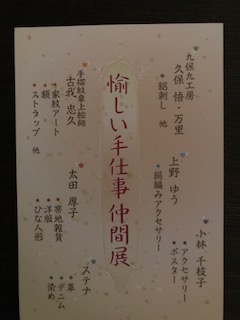 愉しい手仕事仲間展
九保九工房
久保 悟・万里
絽刺し 他
上野 ゆう
絹編みアクセサリー
小林 千枝子
アクセサリー
ポスター
手描紋章上絵師
古我 忠久
家紋アート
額
ストラップ 他
太田 厚子
帯地雑貨
洋服
ひな人形
ステナ
革
デニム
染め